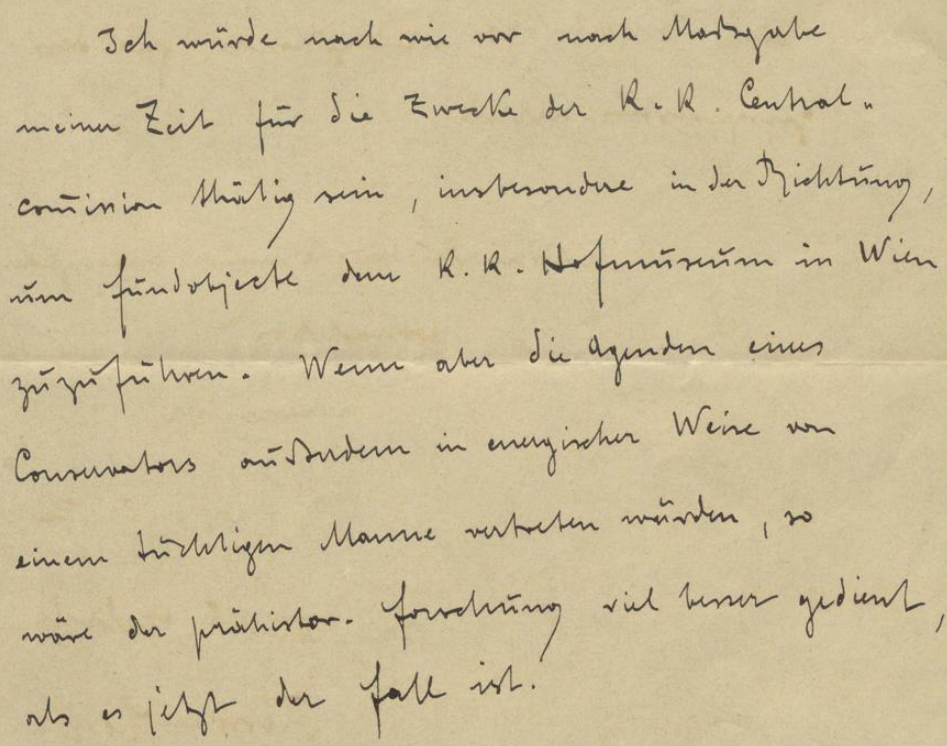 Ich würde nach wie vor nach Maßgabe
meiner Zeit für die Zwecke der K. K. Central-
com̅ission thätig sein, insbesondere in der Richtung,
um Fundobjecte dem K. K. Hofmuseum in Wien
zuzuführen. Wenn aber die Agenden eines
Conservators außerdem in energischer Weise von
einem tüchtigen Manne vertreten würden, so
wäre der prähistor. Forschung viel besser gedient,
als es jetzt der Fall ist.